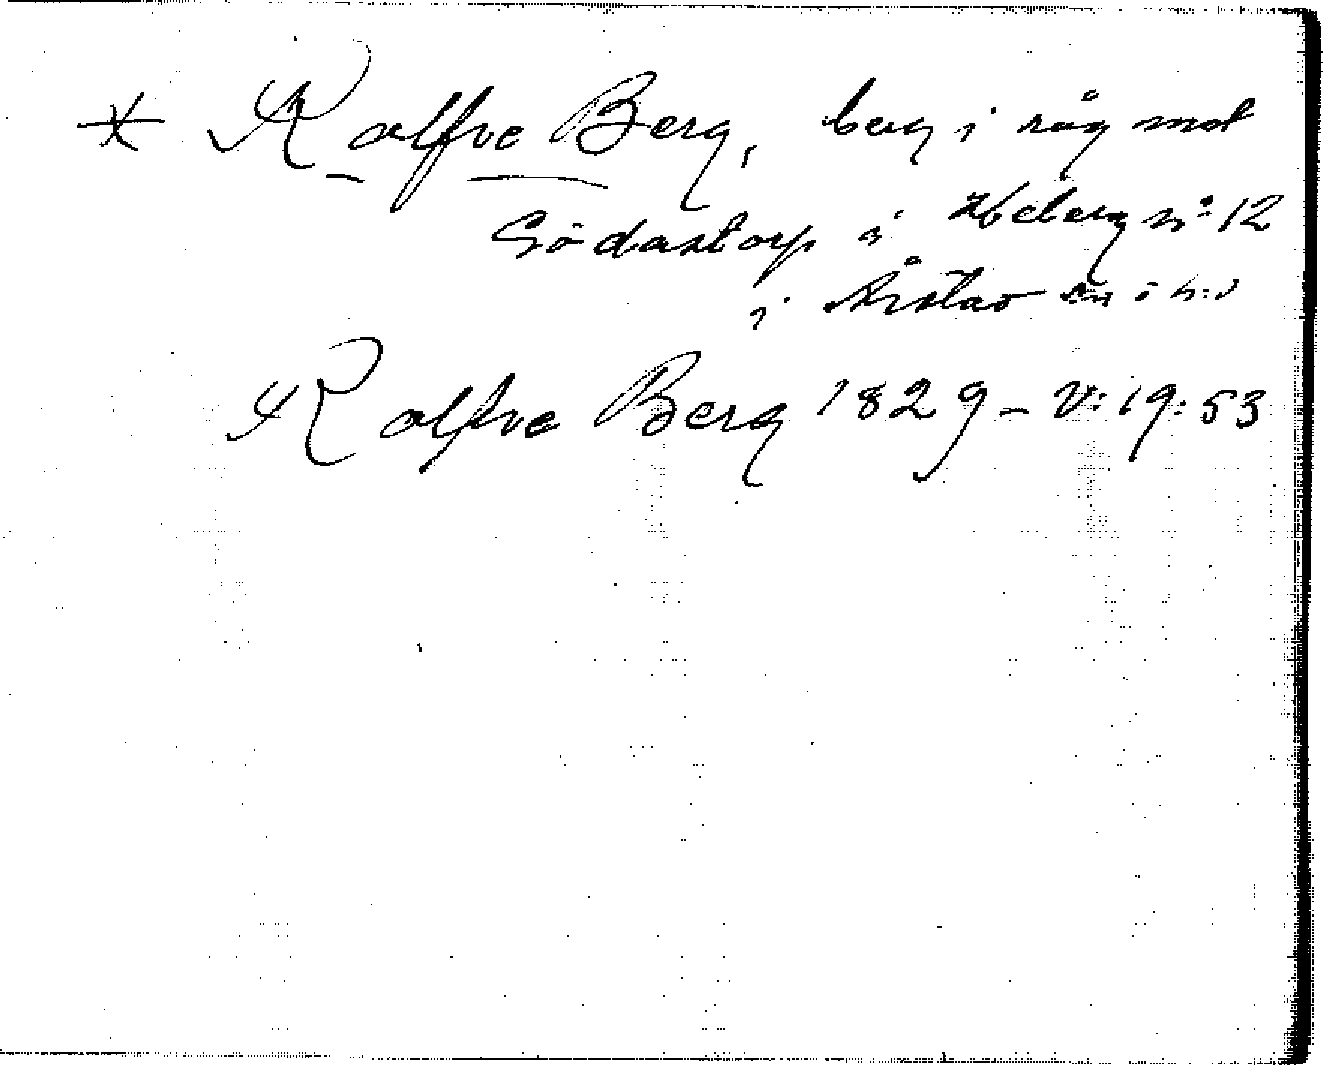 * Rolfve Berg, berg i råg mot
Södastorp å Heberg nº 12
i Årstad
Rolfve Berg 1829 - V:19:53